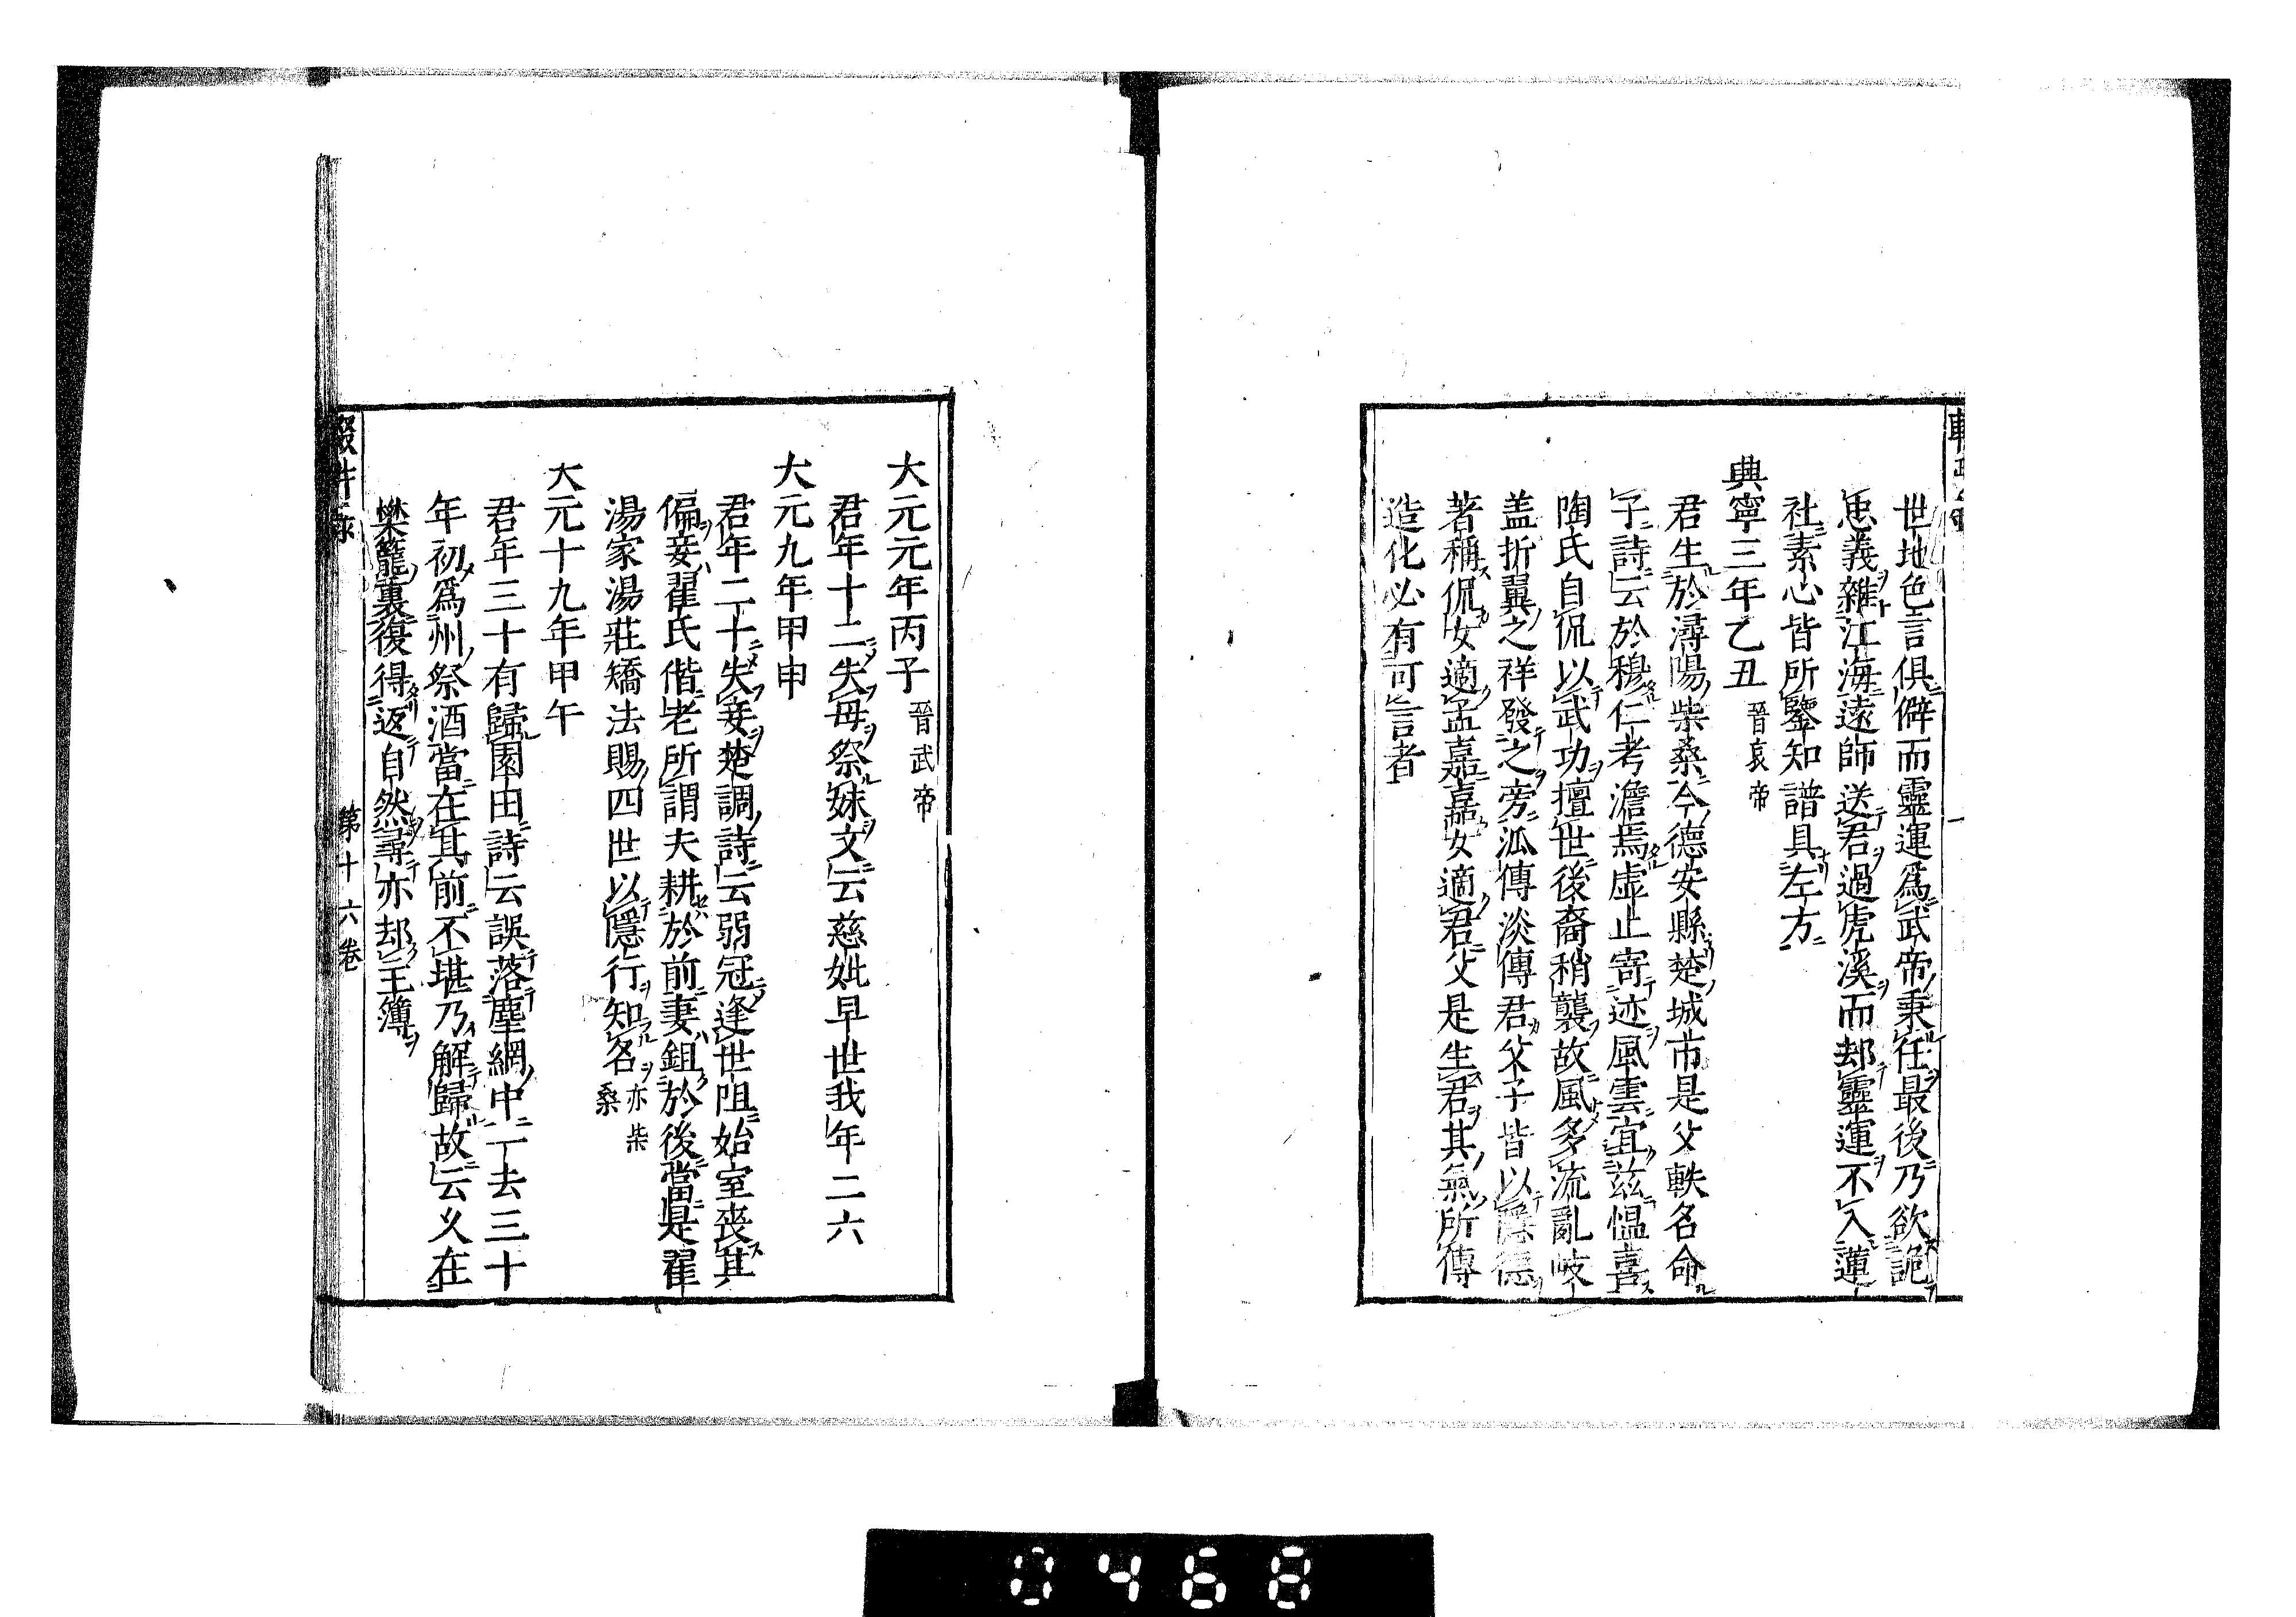 世地色言俱僻而靈運爲武帝秉任最後乃欲詭
忠義雜江海遠師送君過虎溪而却靈運不入蓮
社素心皆所鑒知譜具左方
興寧三年乙丑 晉哀帝
君生於潯陽柴桑今德安縣楚城市是父軼名命
子詩云於穆仁考澹焉虛止寄迹風雲宜茲慍喜
陶氏自侃以武功擅世後裔稍襲故風多流亂岐
盖折翼之祥發之旁派傳淡傳君父子皆以隱德
著稱侃女適孟嘉嘉女適君父是生君其氣所傳
造化必有可言者
大元元年丙子 晉武帝
君年十二失母祭妹文云慈妣早世我年二六
大元九年甲申
君年二十失妾楚調詩云弱冠逢世阻始室喪其
偏妾翟氏偕老所謂夫耕於前妻鉏於後當是翟
湯家湯莊矯法賜四世以隱行知名 亦柴桑
大元十九年甲午
君年三十有歸園田詩云誤落塵網中一去三十
年初爲州祭酒當在其前不堪乃解歸故云久在
樊籠裏復得返自然尋亦却主簿
輟耕錄
第十六卷